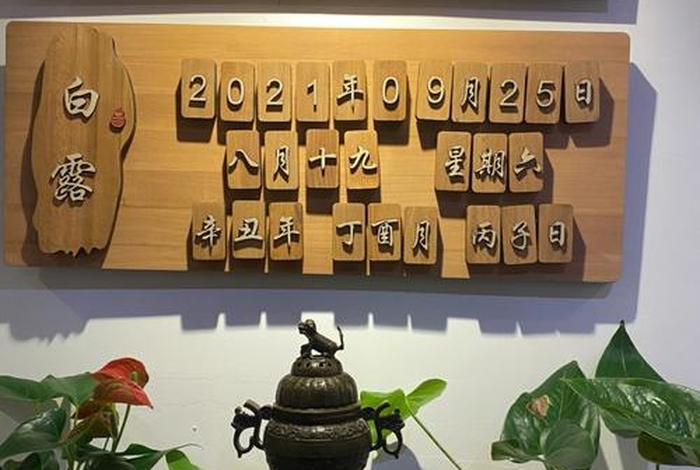 白露
2021年09月25日
八月十九 星期六
辛丑年 丁酉月 丙子日